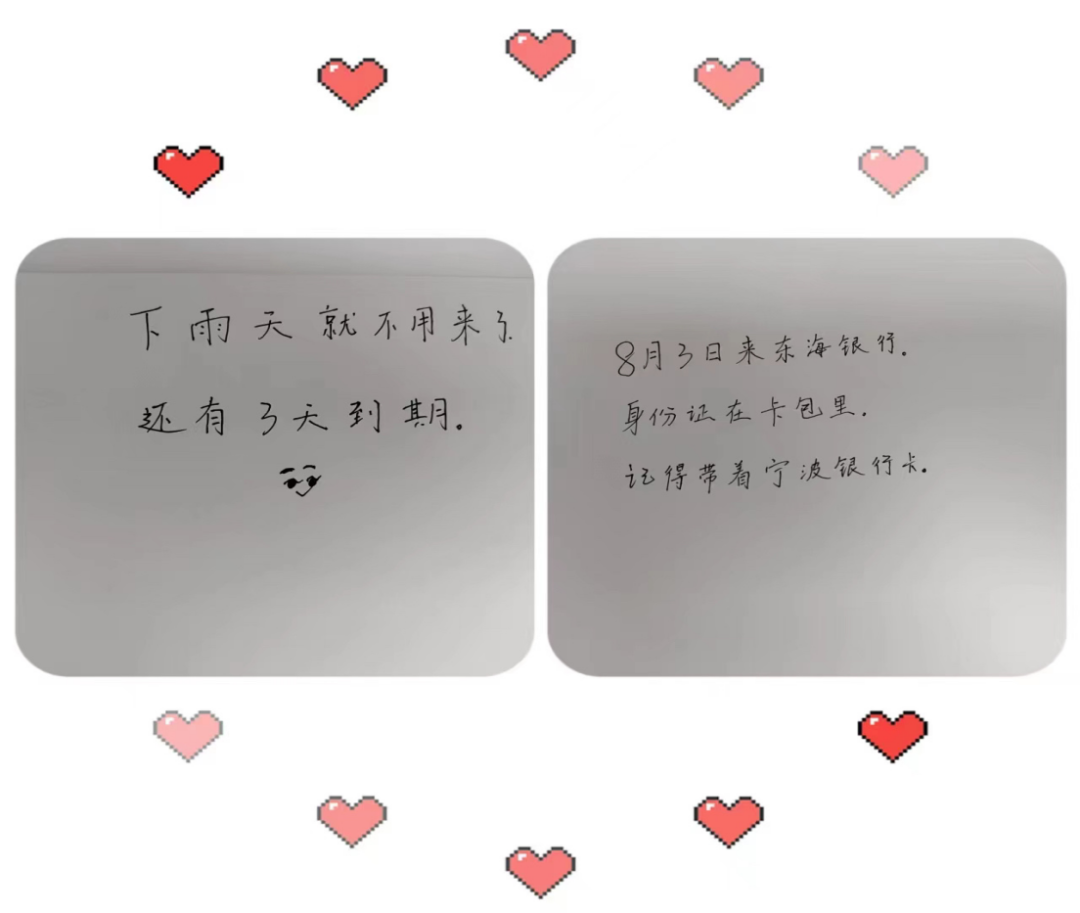 下雨天就不用来了.
还有3天到期.
8月3日来东海银行.
身份证在卡包里.
记得带着宁波银行卡.